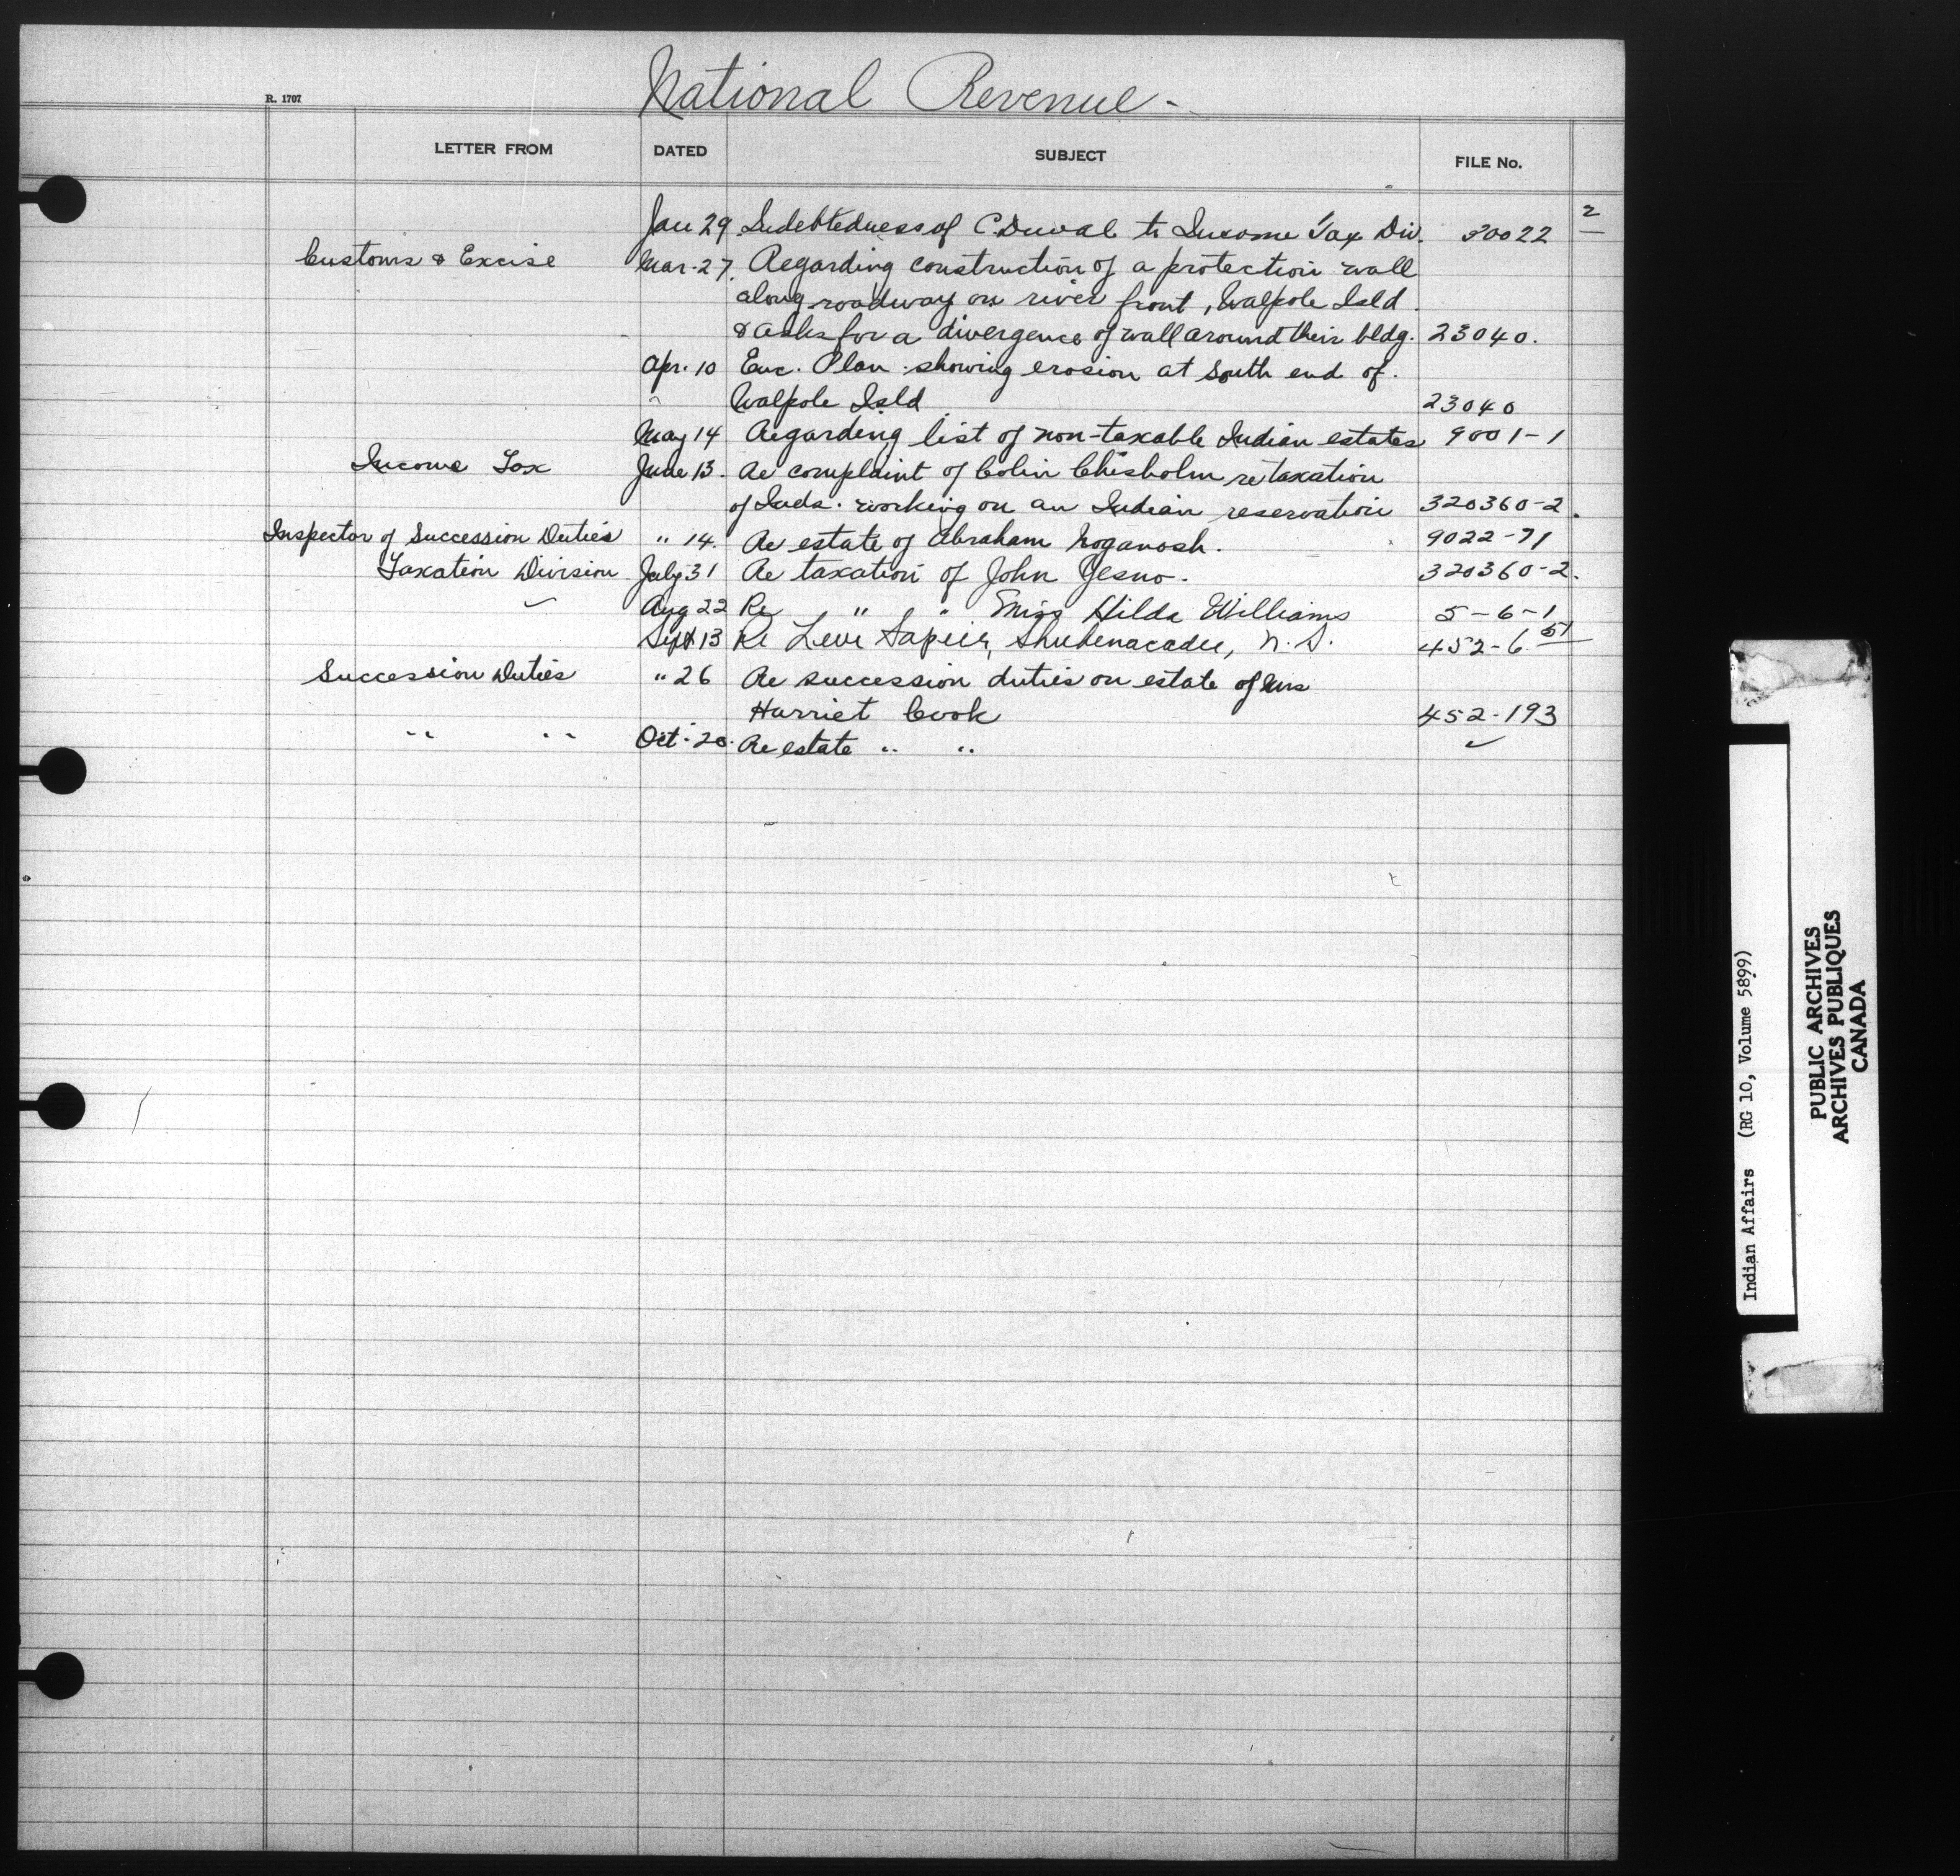 National Revenue -
R. 1707
LETTER FROM DATED SUBJECT FILE No.
2
Jan 29 Indebtedness of C. Duval to Income Tax Div. 30022
Customs & Excise Mar. 27. Regarding construction of a protection wall
along roadway on river front, Walpole Isld.
& asks for a divergence of wall around their bldg. 23040.
Apr. 10 Enc. Plan showing erosion at South end of.
Walpole Isld 23040
May 14 Regarding list of non-taxable Indian estates 9001-1
Income Tax June 13. Re complaint of Colin Chisholm re taxation
of Inds. working on an Indian reservation 320360-2.
Inspector of Succession Duties " 14. Re estate of Abraham Noganosh. 9022-71
Taxation Division July 31 Re taxation of John Yesno. 320360-2.
Aug 22 Re " " Miss Hilda Williams 5-6-1
Sept 13 Re Levi Sapier, Shubenacadie, N.S. 452-6 51
Succession Duties " 26 Re succession duties on estate of Mrs
Harriet Cook 452-193
" " Oct. 20. Re estate " " ✓
Indian Affairs (RG 10, Volume 5899)
PUBLIC ARCHIVES
ARCHIVES PUBLIQUES
CANADA